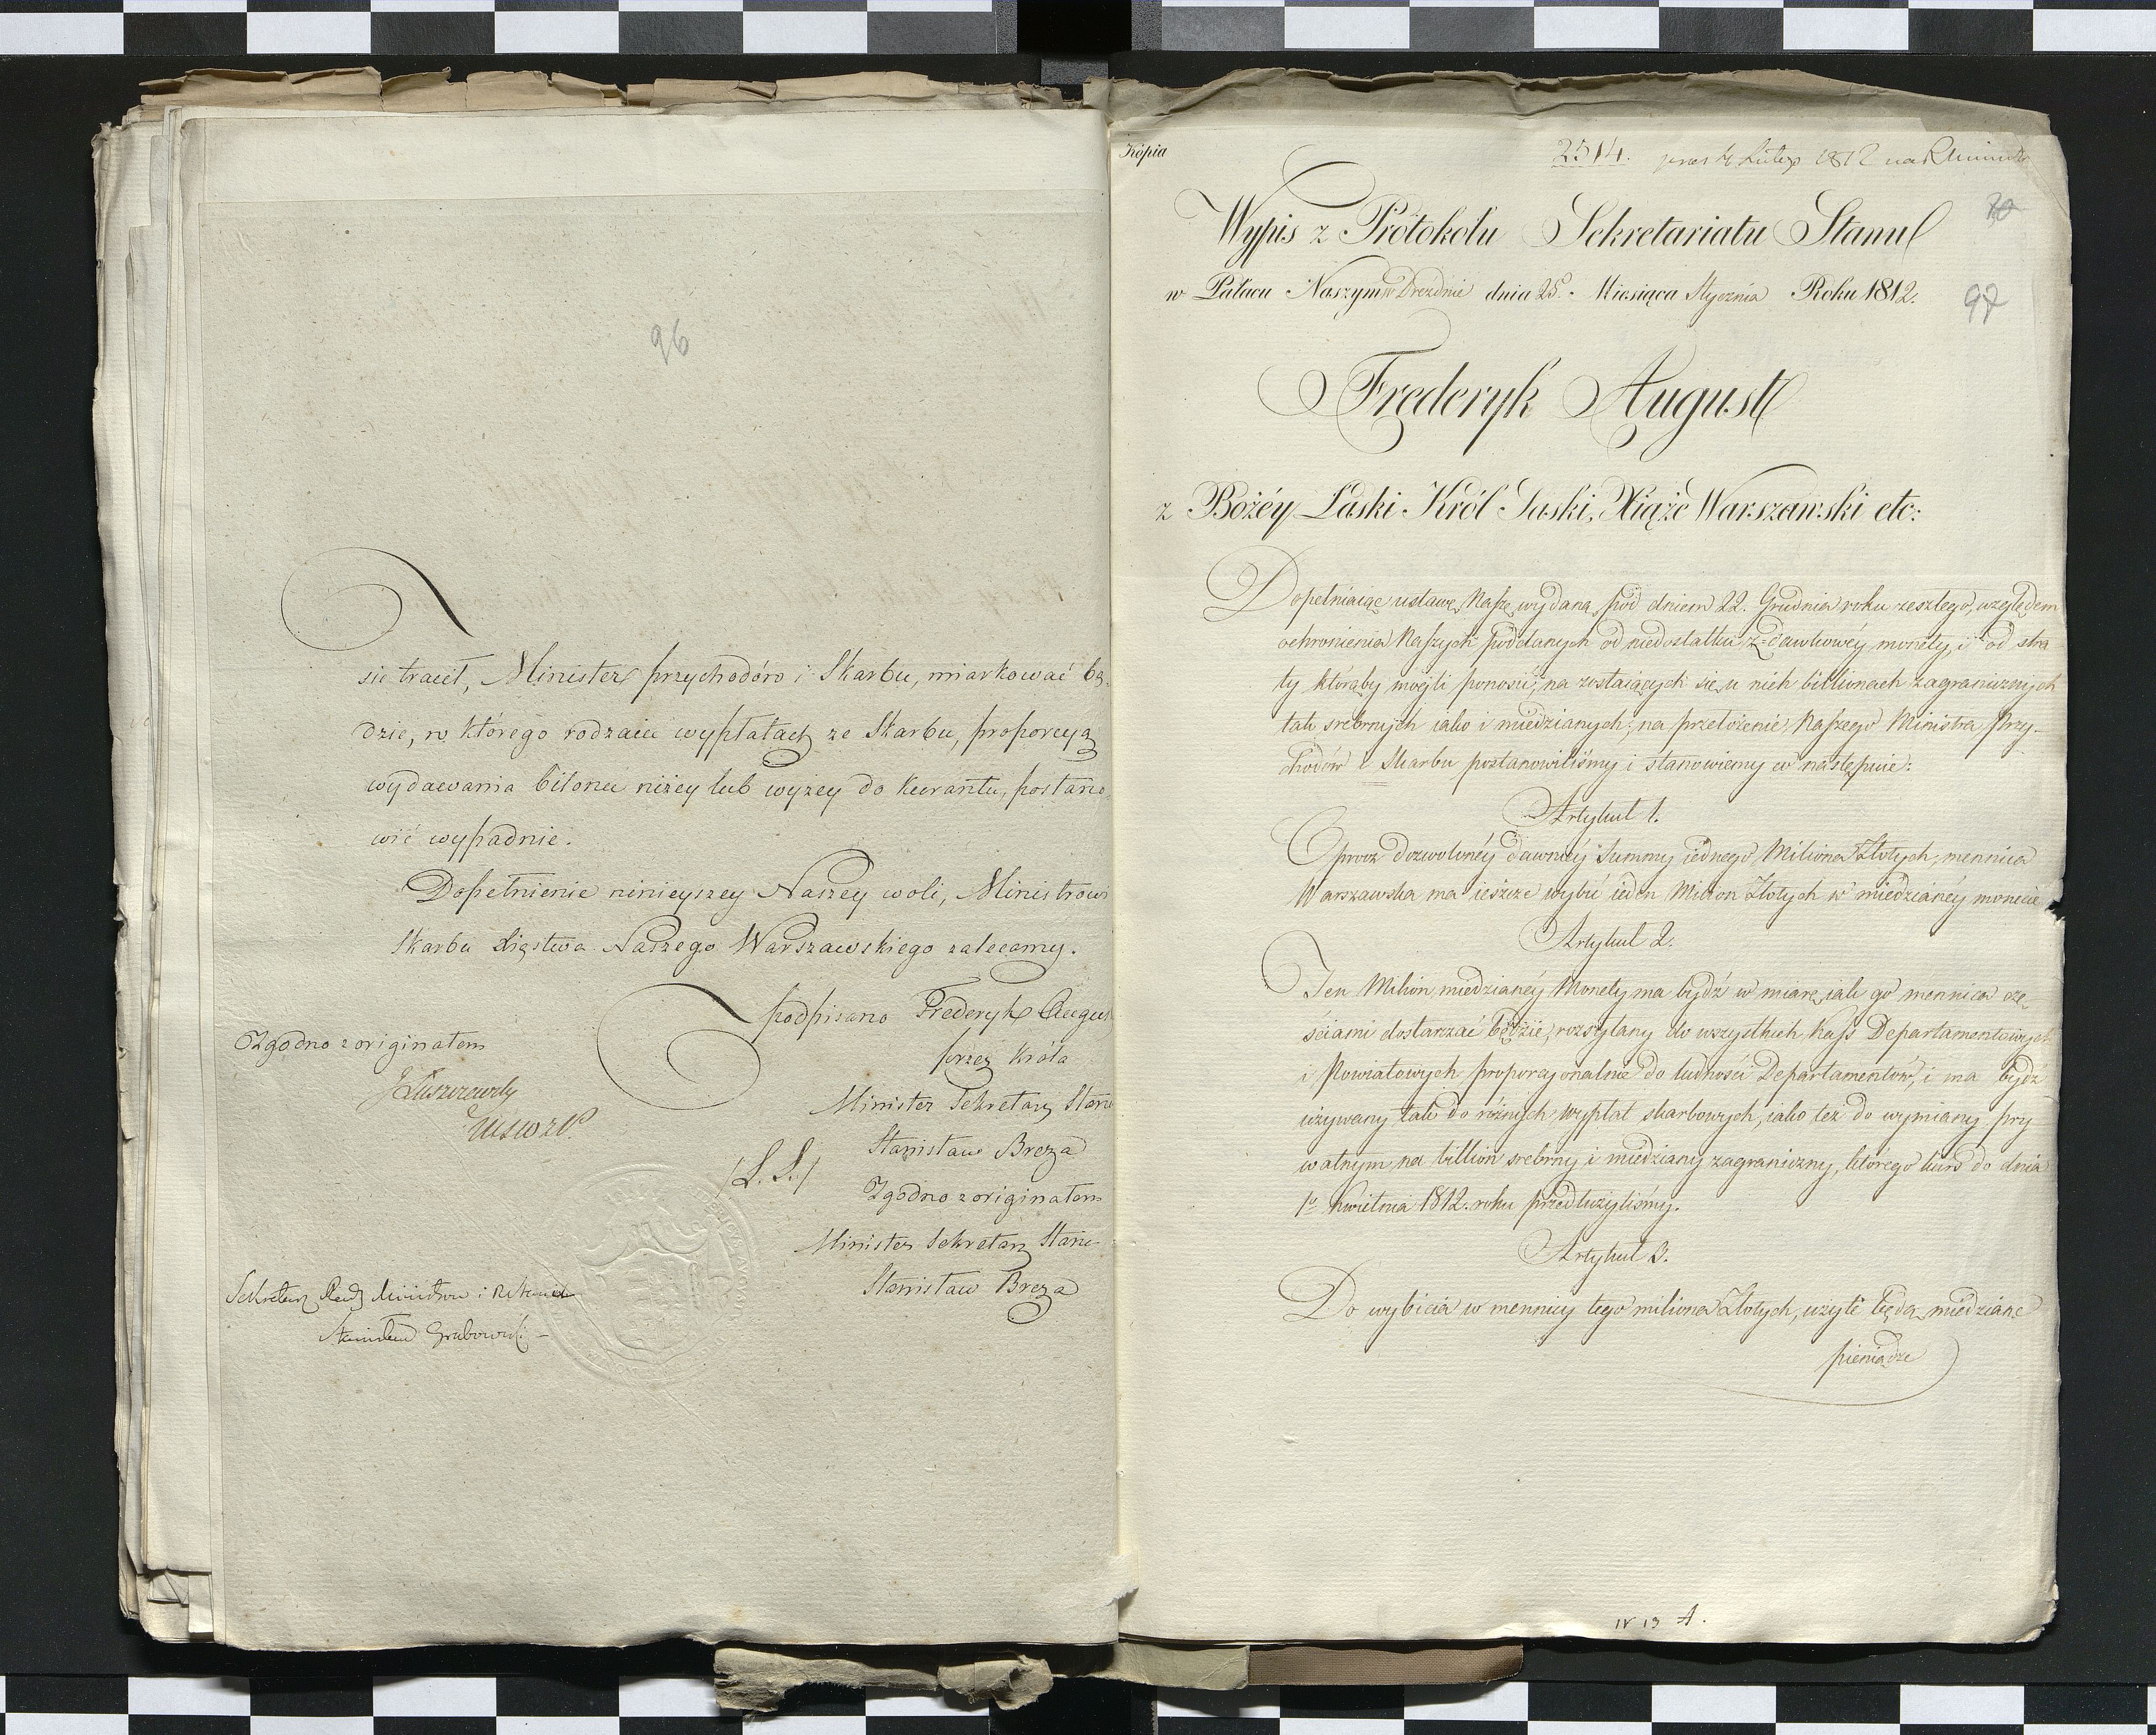 96
się tracił, Minister przychodów i Skarbu, miarkować bę-
dzie, w którego rodzaiu wypłatach ze Skarbu, proporcyą
wydawania bilonu niżey lub wyżey do kurantu, postano-
wić wypadnie.
Dopełnienie ninieyszey Naszey woli, Ministrowi
Skarbu Xięstwa Naszego Warszawskiego zalecamy.
podpisano Frederyk August
przez Króla
Minister Sekretarz Stanu
Stanisław Breza
/L. S./
Zgodno z originałem
Minister Sekretarz Stanu
Stanisław Breza
Zgodno z originałem
Sekretarz Rady Ministrów i
Stanisław Grabowski
Kopia
2514. 4 Lutego 1812 na
70
Wypis z Protokołu Sekretariatu Stanu
w Pałacu Naszym w Dreźnie dnia 25. Miesiąca Stycznia Roku 1812.
97
Frederyk August
z Bożéy Łaski Król Saski, Xiąże Warszawski etc:
Dopełniaiąc ustawę Naszę wydaną pod dniem 22. Grudnia roku zeszłego, względem
ochronienia Naszych poddanych od niedostatku zdawkowéy monety, i od stra-
ty którąby mogli ponosić, na zostaiących się u nich billionach zagranicznych
tak srebrnych iako i miedzianych; na przełożenie Naszego Ministra Przy-
chodów i Skarbu postanowiliśmy i stanowiemy co następuie:
Artykuł 1.
Oprocz dozwolonéy dawniéy Summy iednego Miliona Złotych, mennica
Warszawska ma ieszcze wybić ieden Milion Złotych w miedzianéy monecie
Artykuł 2.
Ten Milion miedzianéy Monety ma bydź w miarę, iak go mennica czę-
ściami dostarzać będzie, rozsyłany do wszystkich Kass Departamentowych
i Powiatowych proporcyonalnie do ludności Departamentów, i ma bydź
używany tak do różnych wypłat skarbowych, iako też do wymiany pry
watnym na billion srebrny i miedziany zagraniczny, którego kurs do dnia
1º Kwietnia 1812. roku przedłużyliśmy.
Artykuł 3.
Do wybicia w mennicy tego miliona Złotych, użyte będą miedziane
pieniądze